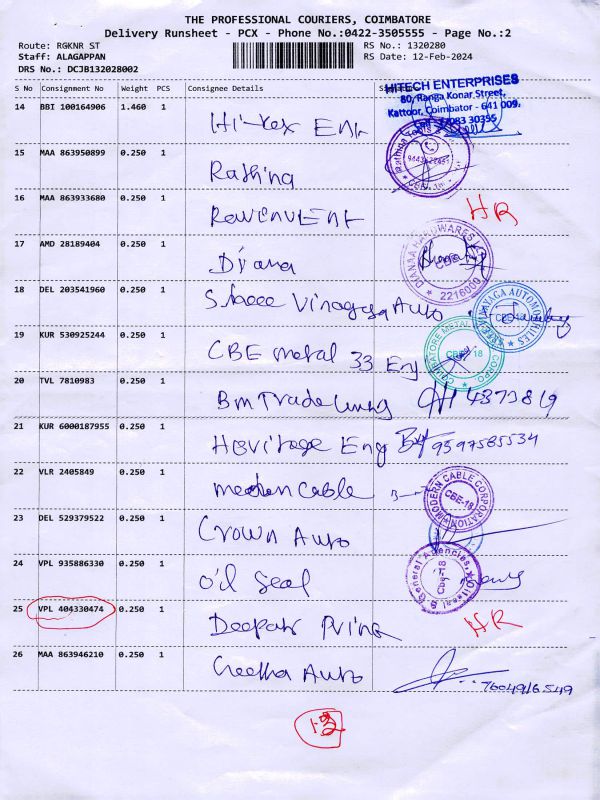 THE PROFESSIONAL COURIERS, COIMBATORE
Delivery Runsheet - PCX - Phone No.:0422-3505555 - Page No.:2
Route: RGKNR ST RS No.: 1320280
Staff: ALAGAPPAN RS Date: 12-Feb-2024
DRS No.: DCJB132028002
S No Consignment No Weight PCS Consignee Details
HITECH ENTERPRISES
80, Ranga Konar Street,
Kattoor, Coimbator - 641 009.
14 BBI 100164906 1.460 1
15 MAA 863950899 0.250 1 Rathina
16 MAA 863933680 0.250 1 HR
17 AMD 28189404 0.250 1 Diana
DIANAA HARDWARES
2216009
18 DEL 203541960 0.250 1 Shree Vinayaga Auto
19 KUR 530925244 0.250 1 CBE metal 33 Eng
COIMBATORE METAL CORPO
CBE - 18
20 TVL 7810983 0.250 1
21 KUR 6000187955 0.250 1 Heritage Eng 9597585534
22 VLR 2405849 0.250 1 modern Cable
MODERN CABLE CORPORATION
CBE-18
23 DEL 529379522 0.250 1 Crown Auto
24 VPL 935886330 0.250 1 Oil Seal
Oilseal & General Agencies
25 VPL 404330474 0.250 1 HR
26 MAA 863946210 0.250 1 Cheetha Auto